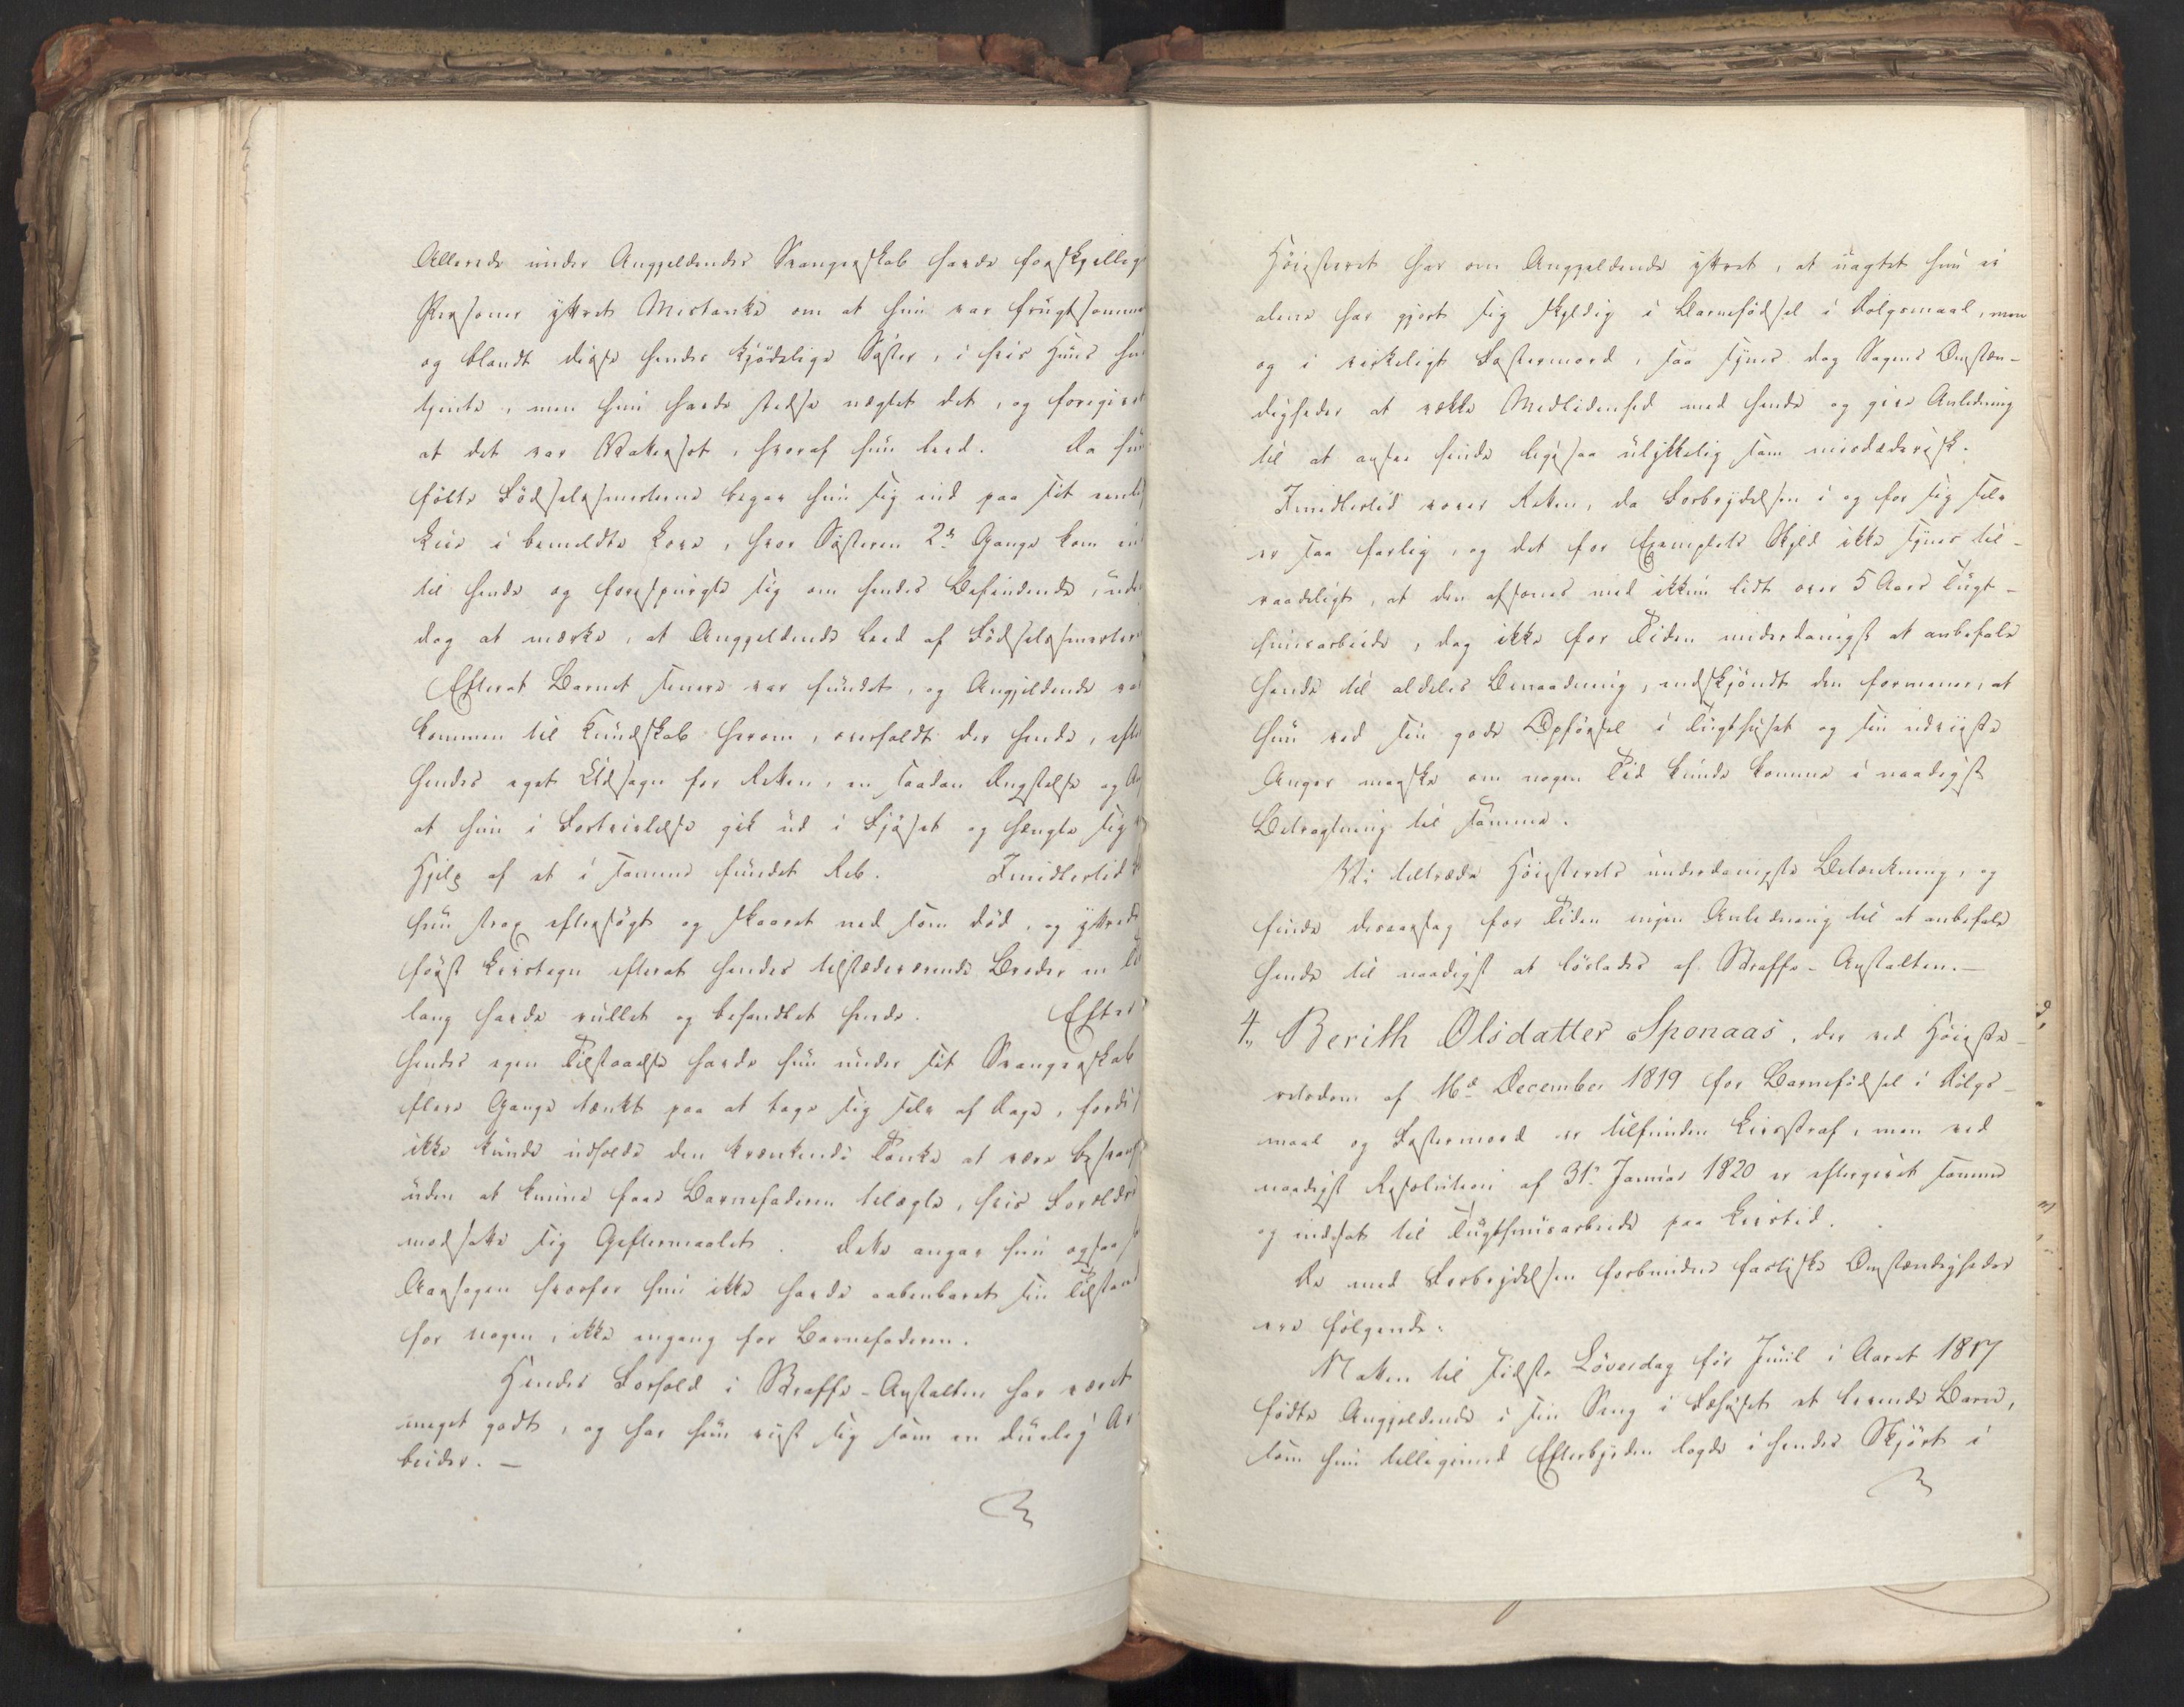 Allerede under Angjeldendes Svangerskab havde forskjellige
Personer yttret Mistanke om at hun var frugtsommel
og blandt disse hendes kjødelige Søster, i hvis Huus hun
tjente, men hun havde stedse nægtet det, og foregivet
at det var Vatersot, hvoraf hun leed. Da hun
følte Fødselssmerterne begav hun sig ind paa sit
i bemeldte, hvor Søsteren 2de Gange kom ind
til hende og forespurgte sig om hendes Befindende, uden
dog at mærke, at Angjeldende leed af Fødselssmerter
Efterat Barnet senere var fundet, og Angjeldende var
kommen til Kundskab herom, overfaldt der hende, efter
hendes eget Udsagn for Retten, en saadan Ængstelse og
at hun i Fortvivlelse gik ud i Fjøset og hængte sig
Hjelp af et i samme fundet Reb. Imidlertid
hun strax eftersøgt og skaaret ned som død, og yttrede
først Livstegn efterat hendes tilstædeværende Broder en
lang havde rullet og behandlet hende. Efter
hendes egen Tilstaaelse havde hun under sit Svangerskab
flere Gange tænkt paa at tage sig selv af Dage, fordi
ikke kunde udholde den krænkende Tanke at være besvang
uden at kunne faae Barnefaderen tilægte, hvis Forældre
modsatte sig Giftermaalet. Dette angav hun ogsaa
Aarsagen hvorfor hun ikke havde aabenbaret sin Tilstand
for nogen, ikke engang for Barnefaderen.
Hendes Forhold i Straffe-Anstalten har været
meget godt, og har hun viist sig som en duelig Ar
beider. —
Høiesteret har om Angjeldende yttret, at uagtet hun ei
alene har gjort sig skyldig i Barnefødsel i Dølgsmaal, men
og i virkeligt Fostermord, saa synes dog Sagens Omstæn-
digheder at vække Medlidenhed med hende og give Anledning
til at ansee hende ligesaa ulykkelig som misdædersk.
Imidlertid vover Retten, da Forbrydelsen i og for sig selv
er saa farlig, og det for Exemplets Skyld ikke synes til-
raadeligt, at den afsones med ikkun lidt over 5 Aars Tugt-
huusarbeide, dog ikke for Tiden underdanigst at anbefale
hende til aldeles Benaadning, endskjøndt den formener, at
hun ved sin gode Opførsel i Tugthuset og sin udviiste
Anger maaske om nogen Tid kunde komme i naadigst
Betragtning til samme.
Vi tiltræde Høiesterets underdanigste Betænkning, og
finde desaarsag for Tiden ingen Anledning til at anbefale
hende til naadigst at løslades af Straffe-Anstalten. —
4., Berith Olsdatter Sponaas, der ved Høieste-
retsdom af 16de December 1819 for Barnefødsel i Dølgs-
maal og Fostermord er tilfunden Livsstraf, men ved
naadigst Resolution af 31te Januar 1820 er eftergivet samme
og indsat til Tugthuusarbeide paa Livstid.
De med Forbrydelsen forbundne factiske Omstændigheder
ere følgende:
Natten til sidste Løverdag før Juul i Aaret 1817
fødte Angjeldende i sin Seng i Fæhuset et levende Barn,
som hun tilligemed Efterbyrden lagde i hendes Skjørt i